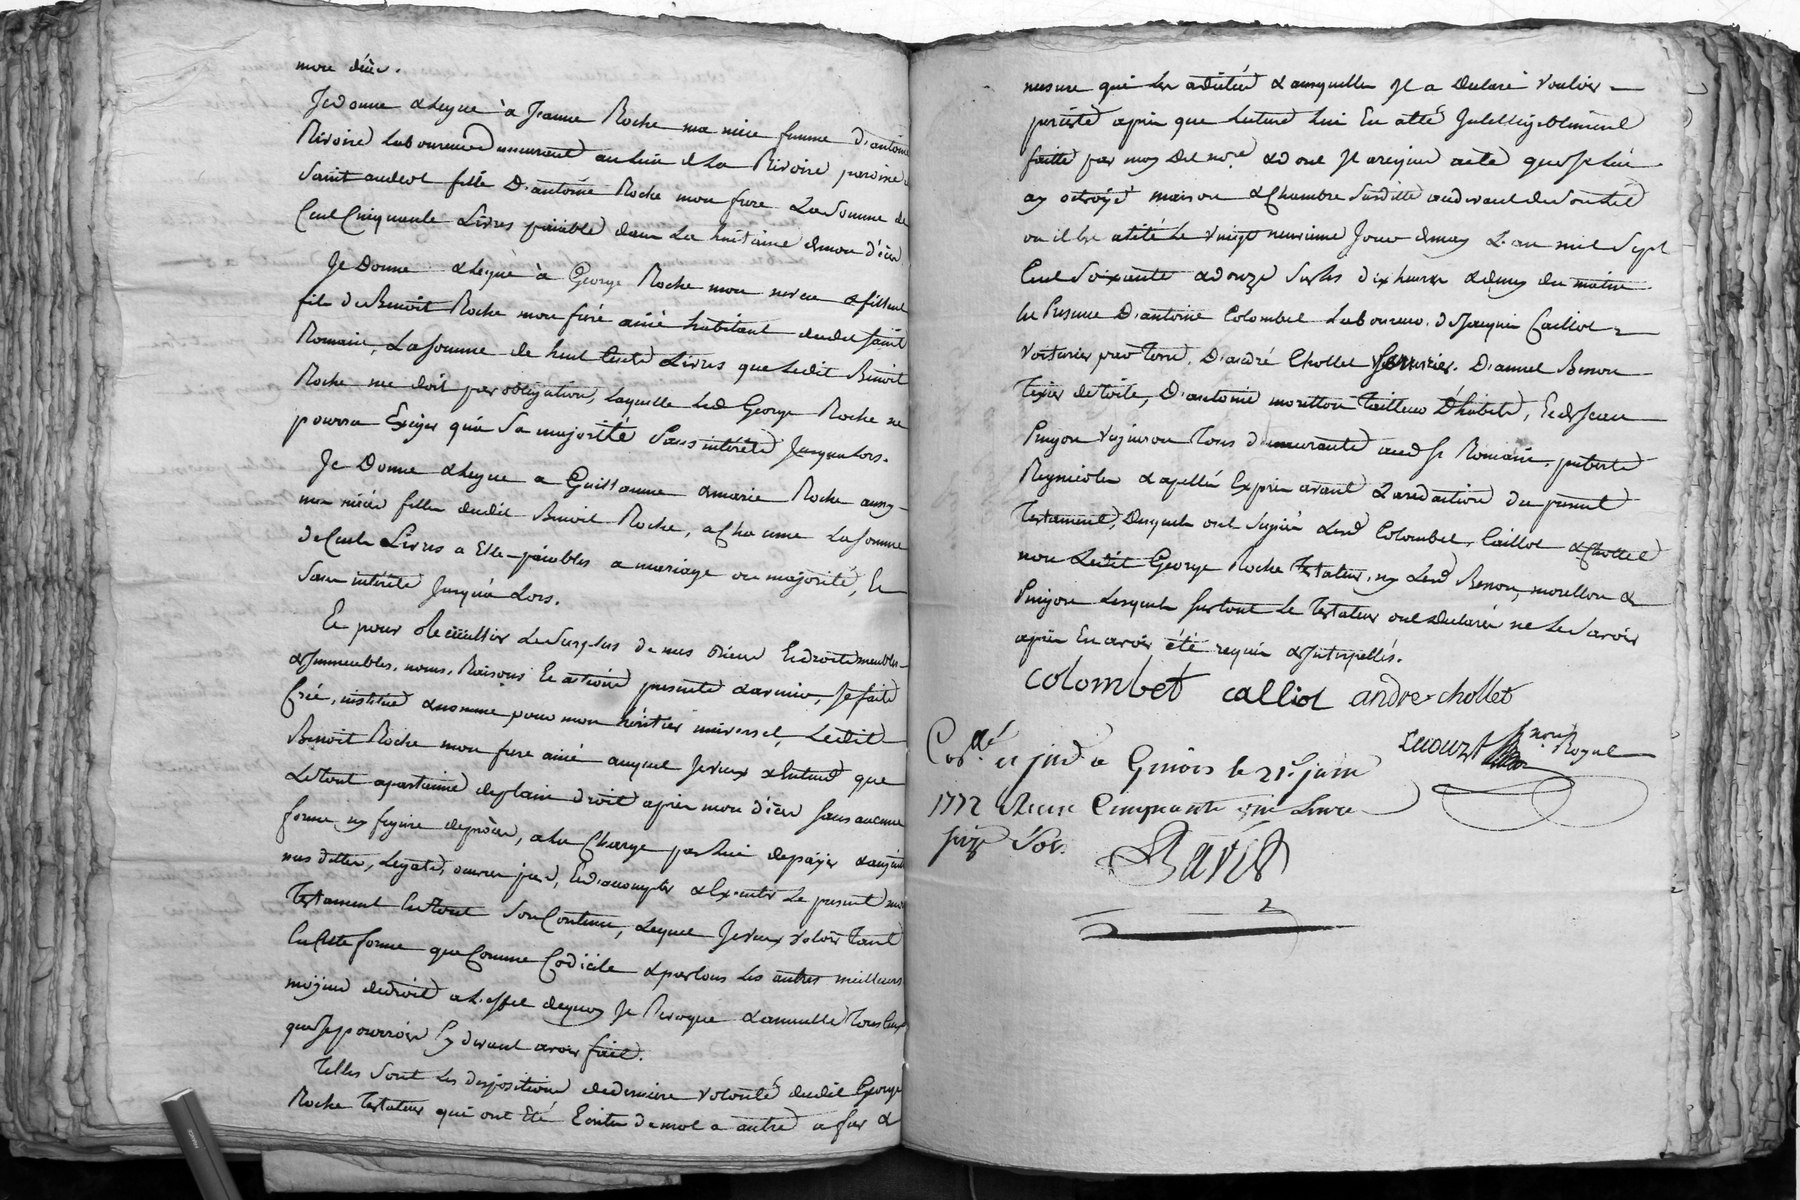 mon décès.
Je donne & legue à Jeanne Roche ma niece femme d'antoine
Rivoire laboureur demeurant au lieu de La Rivoire paroisse de
Saint andeol fille D'antoine Roche mon frere La Somme de
Cent Cinquante Livres païable dans La huitaine de mon décès
Je Donne & legue à George Roche mon neveu & filleul
fils de Benoît Roche mon frere ainé habitant audit Saint
Romain, La somme de huit Cents Livres que Ledit Benoit
Roche me doit par obligation, laquelle led George Roche ne
pourra Exiger qu'à Sa majorité Sans intérêts Jusqu'alors.
Je Donne & legue a Guillaume & marie Roche aussy
mes nieces filles dudit Benoit Roche, a Chacune La somme
de Cents Livres a Elle païables a mariage ou majorité, Et
Sans intérêts Jusqu'à Lors.
Et pour Recueillir Le Surplus de mes Biens Et droits meubles
& Immeubles, noms, Raisons Et actions presents & avenir, Je fait
Créé, institué & nommé pour mon héritier universel, Ledit
Benoit Roche mon frere ainé auquel Je veux & Entend que
Le tout apartienne de plain droit après mon décès sans aucune
forme ny figure de procès, a la Charge par lui de païer & aquiter
mes dettes, Legats, œuvres pies, Et d'accomplir & Executer Le present mon
Testament En tout Son Contenu, Lequel Je veux valoir Tant
En Cette forme que Comme Codicile & par tous les autres meilleurs
moyens de droit a L'effet de quoy Je Revoque & annulle Tous Ceux
que Je pourrois Cy devant avoir fait.
Telles Sont Les dispositions de derniere volonté dudit George
Roche Testateur qui ont Eté Ecrites de mot a autre a fur &
mesure qu'il les a dictées & ausquelles Il a Declaré vouloir
persister après que Lecture Lui En a été Intelligiblement
faitte par moy Dit nore & dont Il a requis acte que Je Lui
ay octroyé maison & Chambre Susditte
le vingt neuvieme Jour de may L'an mil Sept
Cent Soixante & douze Sur les dix heures & demy du matin
En Presence D'antoine Colombet Laboureur, de Jacques Caillot
Voiturier par Terre, D'andré Chollet, D'annet Benon
Texier de toile, D'antoine morillon Tailleur D'habits, Et de Jean
Pinjon vigneron Tous demeurants aud St Romain, puberts
Regnicoles & apellés Exprès avant La redaction du present
Testament, Desquels ont Signé Lesd Colombet, Caillot & Chollet
non Ledit George Roche Testateur, ny Lesd Benon, morillon &
Pinjon Lesquels sur tout Le Testateur ont Declaré ne Le Savoir
après En avoir été requis & Interpellés.
colombet calliot andre chollet
nore Royal
Con.lé et jnd a Givors le 21e juin
1772 Reçu Cinquante une Livre
seize Sols.